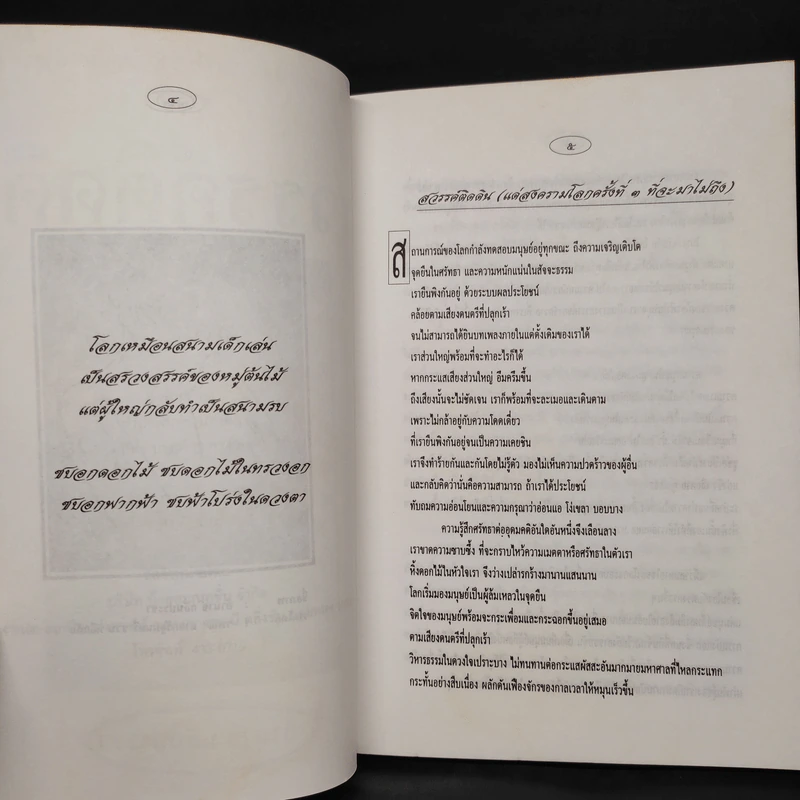 ๔
โลกเหมือนสนามเด็กเล่น
เป็นสรวงสรรค์ของหมู่ต้นไม้
แต่ผู้ใหญ่กลับทำเป็นสนามรบ
ซบอกดอกไม้ ซบดอกไม้ในทรวงอก
ซบอกฟากฟ้า ซบฟ้าโปร่งในดวงตา
๕
สวรรค์ติดดิน (แด่สงครามโลกครั้งที่ ๓ ที่จะมาไม่ถึง)
สถานการณ์ของโลกกำลังทดสอบมนุษย์อยู่ทุกขณะ ถึงความเจริญเติบโต
จุดยืนในศรัทธา และความหนักแน่นในสัจจะธรรม
เรายืนพิงกันอยู่ ด้วยระบบผลประโยชน์
คล้อยตามเสียงดนตรีที่ปลุกเร้า
จนไม่สามารถได้ยินบทเพลงภายในแต่ดั้งเดิมของเราได้
เราส่วนใหญ่พร้อมที่จะทำอะไรก็ได้
หากกระแสเสียงส่วนใหญ่ อึมครึมขึ้น
ถึงเสียงนั้นจะไม่ชัดเจน เราก็พร้อมที่จะละเมอและเดินตาม
เพราะไม่กล้าอยู่กับความโดดเดี่ยว
ที่เรายืนพิงกันอยู่จนเป็นความเคยชิน
เราจึงทำร้ายกันและกันโดยไม่รู้ตัว มองไม่เห็นความปวดร้าวของผู้อื่น
และกลับคิดว่านั่นคือความสามารถ ถ้าเราได้ประโยชน์
ทับถมความอ่อนโยนและความกรุณาว่าอ่อนแอ โง่เขลา บอบบาง
ความรู้สึกศรัทธาต่ออุดมคติอันใดอันหนึ่งจึงเลือนลาง
เราขาดความซาบซึ้ง ที่จะกราบไหว้ความเมตตาหรือศรัทธาในตัวเรา
หิ้งดอกไม้ในหัวใจเรา จึงว่างเปล่ารกร้างมานานแสนนาน
โลกเริ่มมองมนุษย์เป็นผู้ล้มเหลวในจุดยืน
จิตใจของมนุษย์พร้อมจะกระเพื่อมและกระฉอกขึ้นอยู่เสมอ
ตามเสียงดนตรีที่ปลุกเร้า
วิหารธรรมในดวงใจเปราะบาง ไม่ทนทานต่อกระแสผัสสะอันมากมายมหาศาลที่ไหลกระแทก
กระทั้นอย่างสืบเนื่อง ผลักดันเฟืองจักรของกาลเวลาให้หมุนเร็วขึ้น